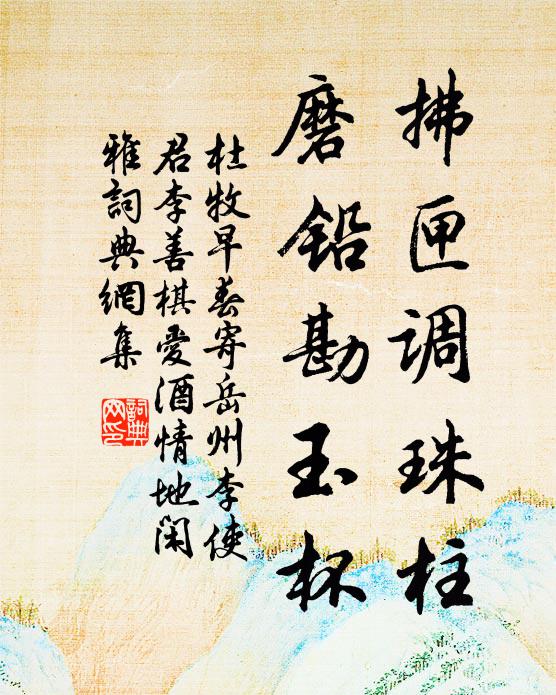 拂匣调珠柱
磨铅勘玉杯
杜牧早春寄岳州李使
君李善棋爱酒情地闲
雅詞典網集
詞典網印